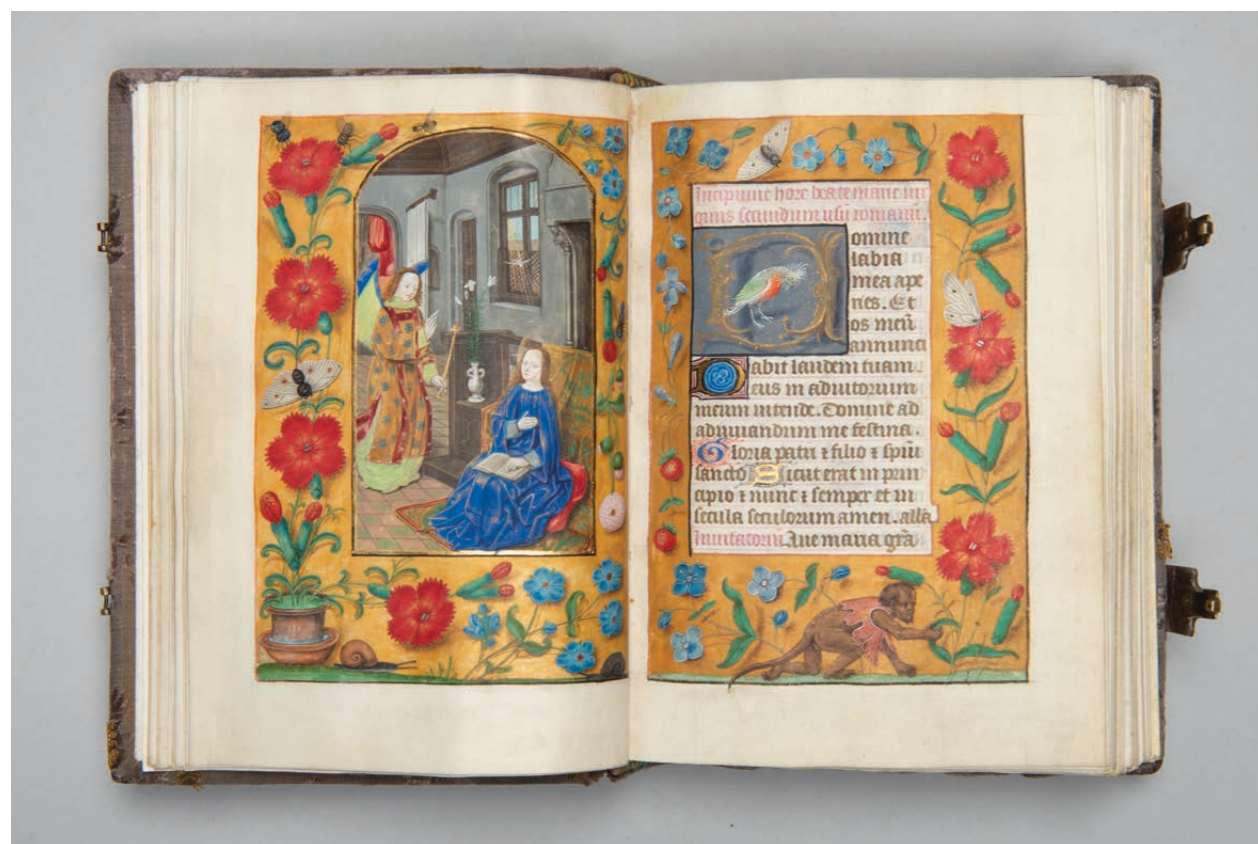 Incipiunt hore beate marie vir
ginis secundum usū romanū.
omine
labia
mea ape
ries. Et
os meū
annunci
abit laudem tuam
Deus in adiutorium
meum intende. Domine ad
adiuuandum me festina.
Gloria patri ⁊ filio ⁊ spiū
sancto Sicut erat in prin
cipio ⁊ nunc ⁊ semper et in
secula seculorum amen. alla.
Inuitatoriū. Aue maria grā